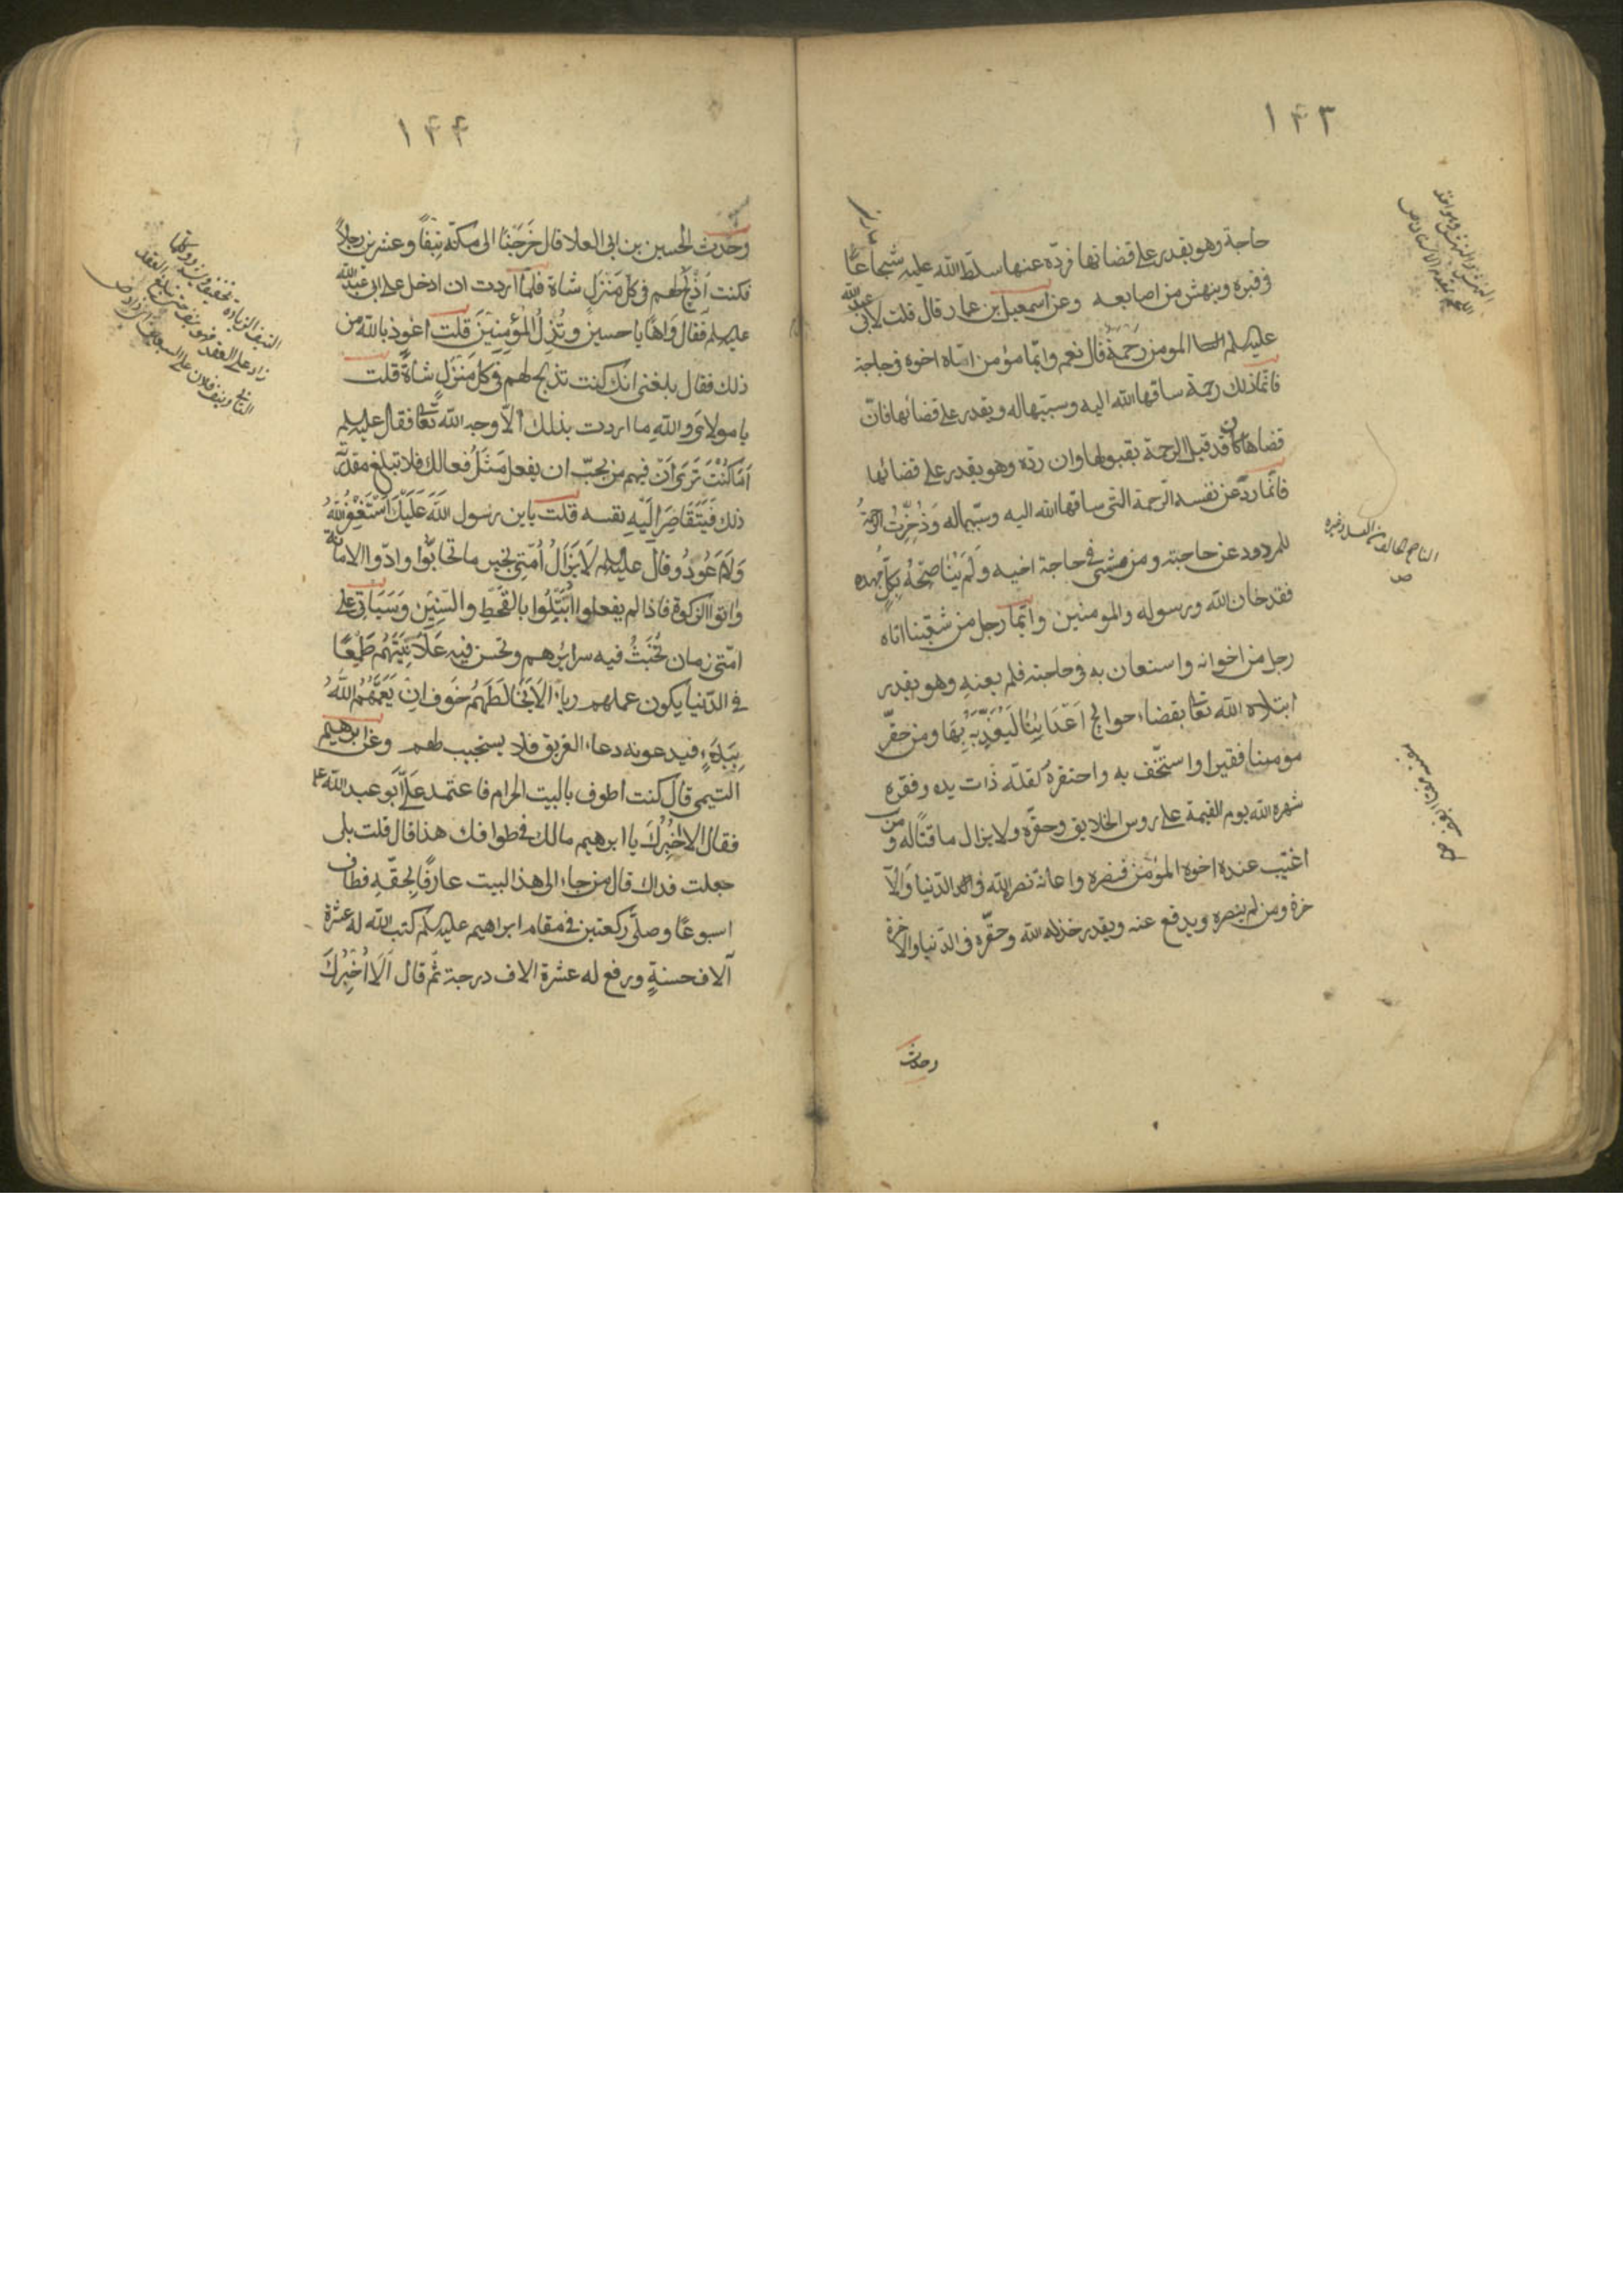 ١٤٣
حاجة وهو يقدر على قضائها فردّه عنها سلّط الله عليه شجاعًا
فى قبره وينهش من اصابعه وعن اسمعيل بن عمار قال قلت لابى عبد الله
عليه السلم المومن رَحمةٌ قال نعم وايّما مؤمن اتاه اخوه فى حاجة
فانّما ذلك رحمة ساقها الله اليه وسبّبها له ويقدر على قضائها فانّ
قضاها كان قد قبل الرحمة بقبولها وان ردّه وهو يقدر على قضائها
فانّما ردّ عن نفسه الرّحمة التى ساقها الله اليه وسبّبها له وَذُخِّرَت الرحمةُ
للمردود عن حاجته ومن مشى فى حاجة اخيه وَلَم يُنَاصِحْهُ بِكلّ جهده
فقد خان الله ورسوله والمومنين وايّما رجل من شيعَتنا اتاه
رجل من اخوانه واستعان به فى حاجته فلم يعنه وهو يقدر
ابتلاه الله تعا بقضاء حوايج اَعْدَائِنا لَيُعَذِّبَهُ بِهَا ومن حقّر
مؤمنا فقيرا واستخّف به واحتقرهُ لقلّة ذات يده وفقره
شهره الله يوم القيمة على روس الخلايق وحقّره ولا يزال ماقتًا له ومن
اغتيب عنده اخوه المؤمن فنصره واعانه نصره الله فى الدّنيا وَالآ
خرة ومن لم ينصره ويدفع عنه ويقدر خذله الله وحقّره فى الدّنيا والاخرة
وحدث
الناصح الخالص من العسل وغيره
ص
١٤٤
وحَدث الحسين بن ابى العلا قال خَرَجْنَا الى مكة نيّفًا وعشرين رجلاً
فكنت اَذْبَحُ لهم فى كل مَنزل شاة فلمّا اردت ان ادخل على ابى عبد الله
عليه السلم فقال وَاهًا يا حسينُ وتُذِلُّ المؤمِنِينَ قلت اعُوذ بالله من
ذلك فقال بلغنى انك كنت تذبح لهم فى كل مَنزَلٍ شاةً قلت
يا مولاى والله ما اردت بذلك الّا وجه الله تعا فقال عليه السلم
اَمَا كُنْتَ تَرَى اَنّ فيهم من يحبّ ان يفعل مَثْلَ فعالك فلا تبلغ مقدرته
ذلك فَيَتَقَاصَرَ اِلَيْهِ نفسه قلت يا بن رسول الله عَلَيْكَ اَسْتَغْفِرُ اللهَ
وَلَا اَعُودُ وقال عليه السلم لا يَزَالُ اُمَّتِى بخير ما تحابّوا وادّوا الامانة
واتوا الزكوة فاذا لم يفعلوا اُبتُلُوا بالقَحْطِ والسِّنِينَ وَسَيَاتى على
امّتى زمان تُخْبَثُ فيه سرائرهم وتحسن فيه عَلَانِيَتَهُم طَمَعًا
فى الدّنيا يكون عملهم رياءً لَا يَخَالَطَهُم خَوف اَنْ يَعُمَّهُمُ اللهُ
بِبَلَاءٍ فيدعونه دعاء الغريق فلا يستجيب لهم وعَن ابرهيم
التيمى قال كنت اطوف بالبيت الحرام فاعتمد عَلَىَّ اَبو عبد الله ع
فقال الا اخْبِرُكَ يا ابرهيم مالك فى طوافك هذا قال قلت بلى
جعلت فداك قال من جاء الى هذا البيت عارفًا بِحقّهِ فطاف
اسبوعًا وصلّى ركعتين فى مقام ابراهيم عليه السلم كتب الله له عشرة
آلاف حسنةٍ ورفع له عشرة الاف درجة ثُمّ قال اَلَا اُخْبِرُكَ
النيف الزيادة يخفف ويشدد
زاد على العقد فهو نيف حتى يبلغ العقد